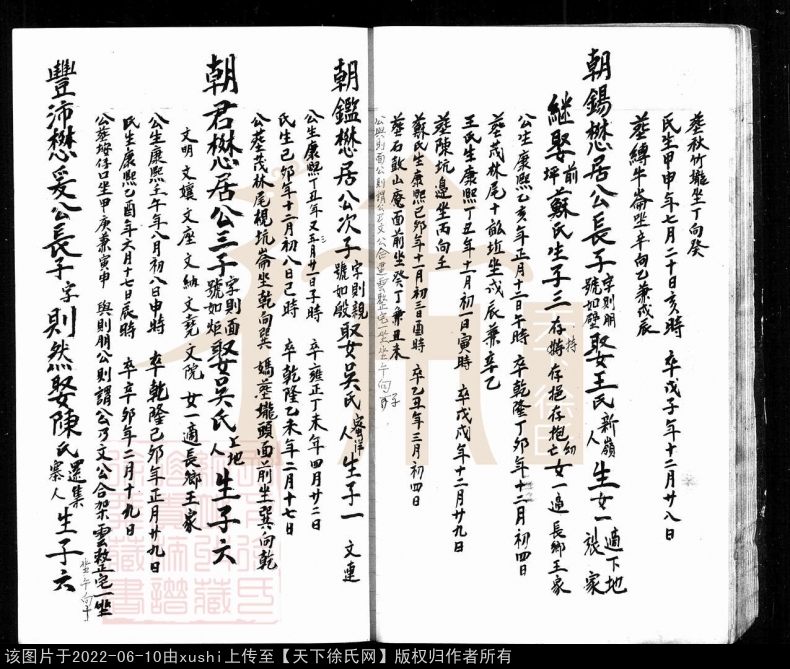 葬秋竹壠坐丁向癸
民生甲申年七月二十日亥時 卒戊子年十二月廿八日
葬縛牛崙坐辛向乙兼戊辰
朝錫懋居公長子字則朋號如璧娶王氏新嶺人生女一適下地張家
繼娶前坪蘇氏生子三存持存挹存抱幼亡女一適長鄉王家
公生康熙乙亥年正月十二日午時 卒乾隆丁卯年十二月初四日
葬茂林尾十敵坵坐戊辰兼辛乙
王氏生康熙丁丑年十一月初一日寅時 卒戊戌年十二月廿九日
葬陳坑邊坐丙向壬
蘇氏生康熙己卯年十一月初三日酉時 卒乙丑年三月初四
葬石畝山庵面前坐癸丁兼丑未
公與則面公則謂公文公合里雲整宅一坐坐午向子
朝鑑懋居公次子字則親號如殷娶吳氏蜜洋人生子一 文連
公生康熙丁丑年又三月廿一日子時 卒雍正丁未年四月廿二日
氏生己卯年十二月初八日己時 卒乾隆乙未年二月十七日
公葬茂林尾梘坑崙坐乾向巽 媽葬壠頭面前坐巽向乾
朝君懋居公三子字則面號如炬娶吳氏上地人生子六
文明 文孃 文座 文納 文堯 文院 女一適長鄉王家
公生康熙壬午年八月初八日申時 卒乾隆己卯年正月廿九日
氏生康熙乙酉年六月十七日辰時 卒辛卯年二月十九日
公葬垵仔口坐甲庚兼寅申 與則朋公則謂公乃文公合架雲整宅一坐坐午向子
豐沛懋爰公長子字則然娶陳氏還集寨人生子六
该图片于2022-06-10由xushi上传至【天下徐氏网】版权归作者所有